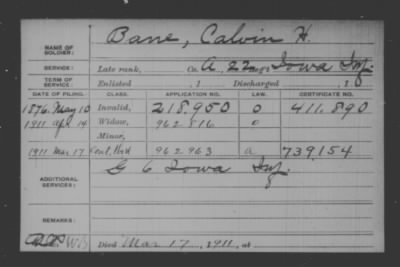 NAME OF SOLDIER: Bane, Calvin H.
SERVICE: Late rank, Co. A, 22 Reg't Iowa Inf.
TERM OF SERVICE: Enlisted , 1 Discharged , 18
DATE OF FILING. CLASS. APPLICATION NO. LAW. CERTIFICATE NO.
1876. May 10 Invalid, 218.950 0 411.890
1911 Apl 14 Widow, 962 816 0
Minor,
1911 Mar 17 962 963 a 739,154
ADDITIONAL SERVICES: G 6 Iowa Inf.
REMARKS:
Died Mar 17, 1911, at